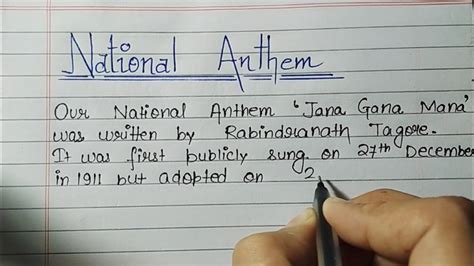 National Anthem
Our National Anthem 'Jana Gana Mana'
was written by Rabindranath Tagore.
It was first publicly sung on 27th December
in 1911 but adopted on 2